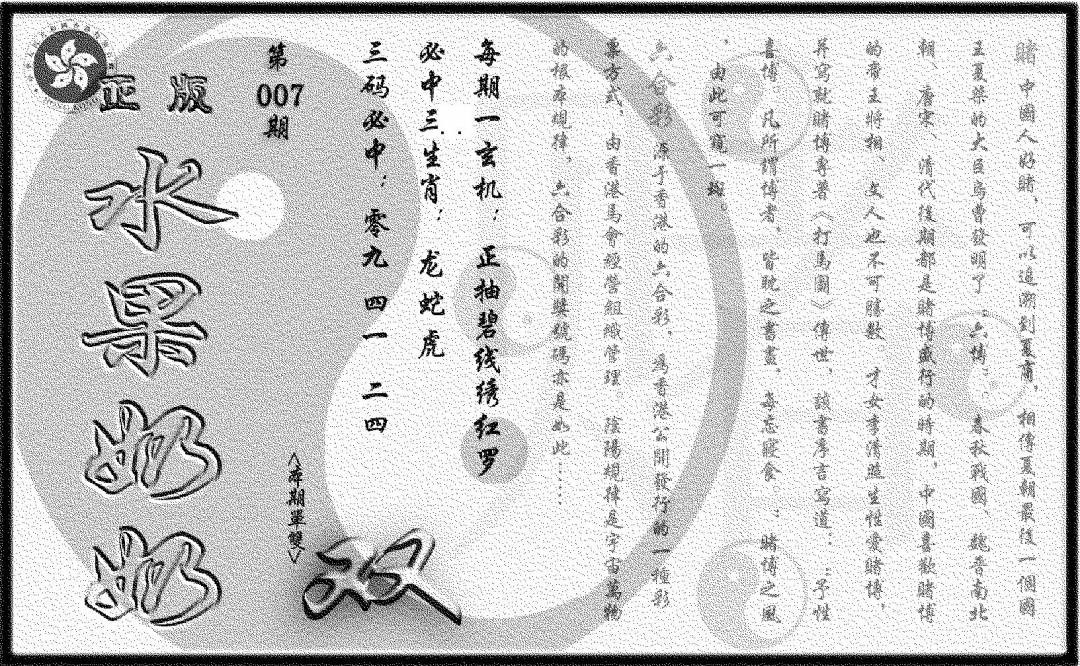 賭 中國人好賭，可以追溯到夏商，相傳夏朝最後一個國
王夏桀的大臣烏曹發明了“六博”。春秋戰國、魏晉南北
朝、唐宋、清代後期都是賭博盛行的時期，中國喜歡賭博
的帝王將相 文人也不可勝數 才女李清照生性愛賭博，
并寫就賭博專著《打馬圖》傳世，該書序言寫道：“予性
喜博。凡所謂博者，皆耽之晝晝，每忘寢食”；賭博之風
，由此可窺一斑。
六合彩 源于香港的六合彩，為香港公開發行的一種彩
票方式，由香港馬會經營組織管理。陰陽規律是宇宙萬物
的根本規律，六合彩的開獎號碼亦是如此……
每期一玄机：正抽碧线绣红罗
必中三生肖：龙蛇虎
三码必中：零九 四一 二四
第
007
期
<本期單雙>
双
正版
水果奶奶